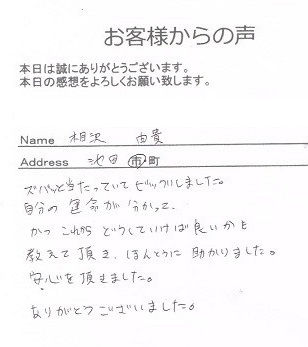 お客様からの声
本日は誠にありがとうございます。
本日の感想をよろしくお願い致します。
Name 相沢 由貴
Address 池田 市町
ズバッと当たっていてビックリしました。
自分の運命が分かって、
かつこれからどうしていけば良いかと
教えて頂き、ほんとうに助かりました。
安心を頂きました。
ありがとうございました。